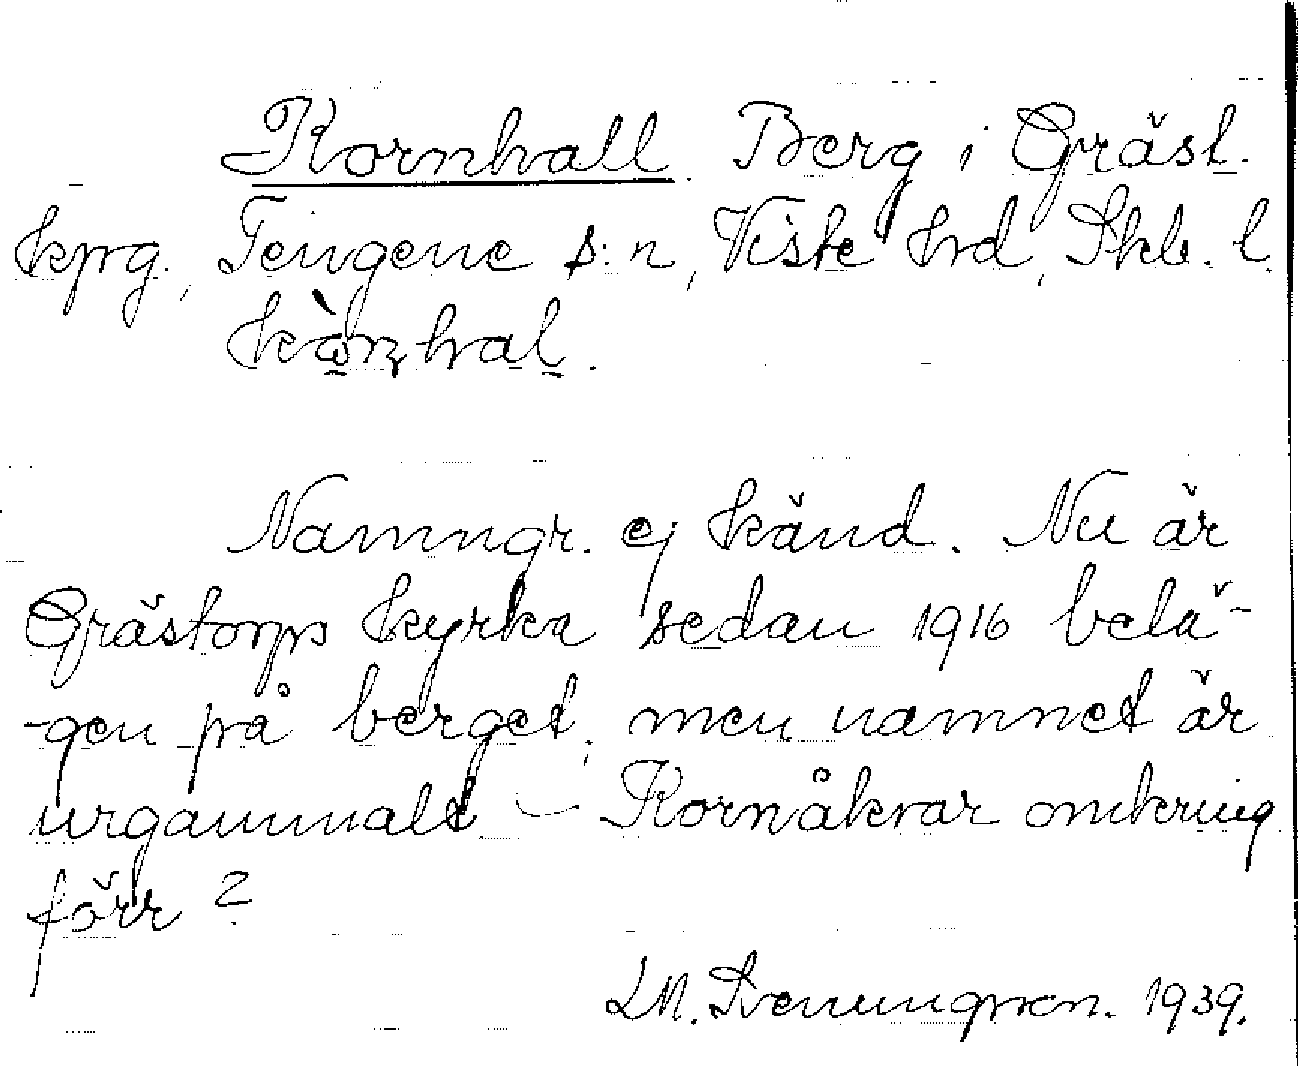 Kornhall. Berg i Gräst.
kprg., Tengene s:n, Viste hrd, Skb. l.
Namngr. ej känd. Nu är
Grästorps kyrka sedan 1916 belä-
-gen på berget, men namnet är
urgammalt – Kornåkrar omkring
förr?
LM. Svenungsson. 1939.